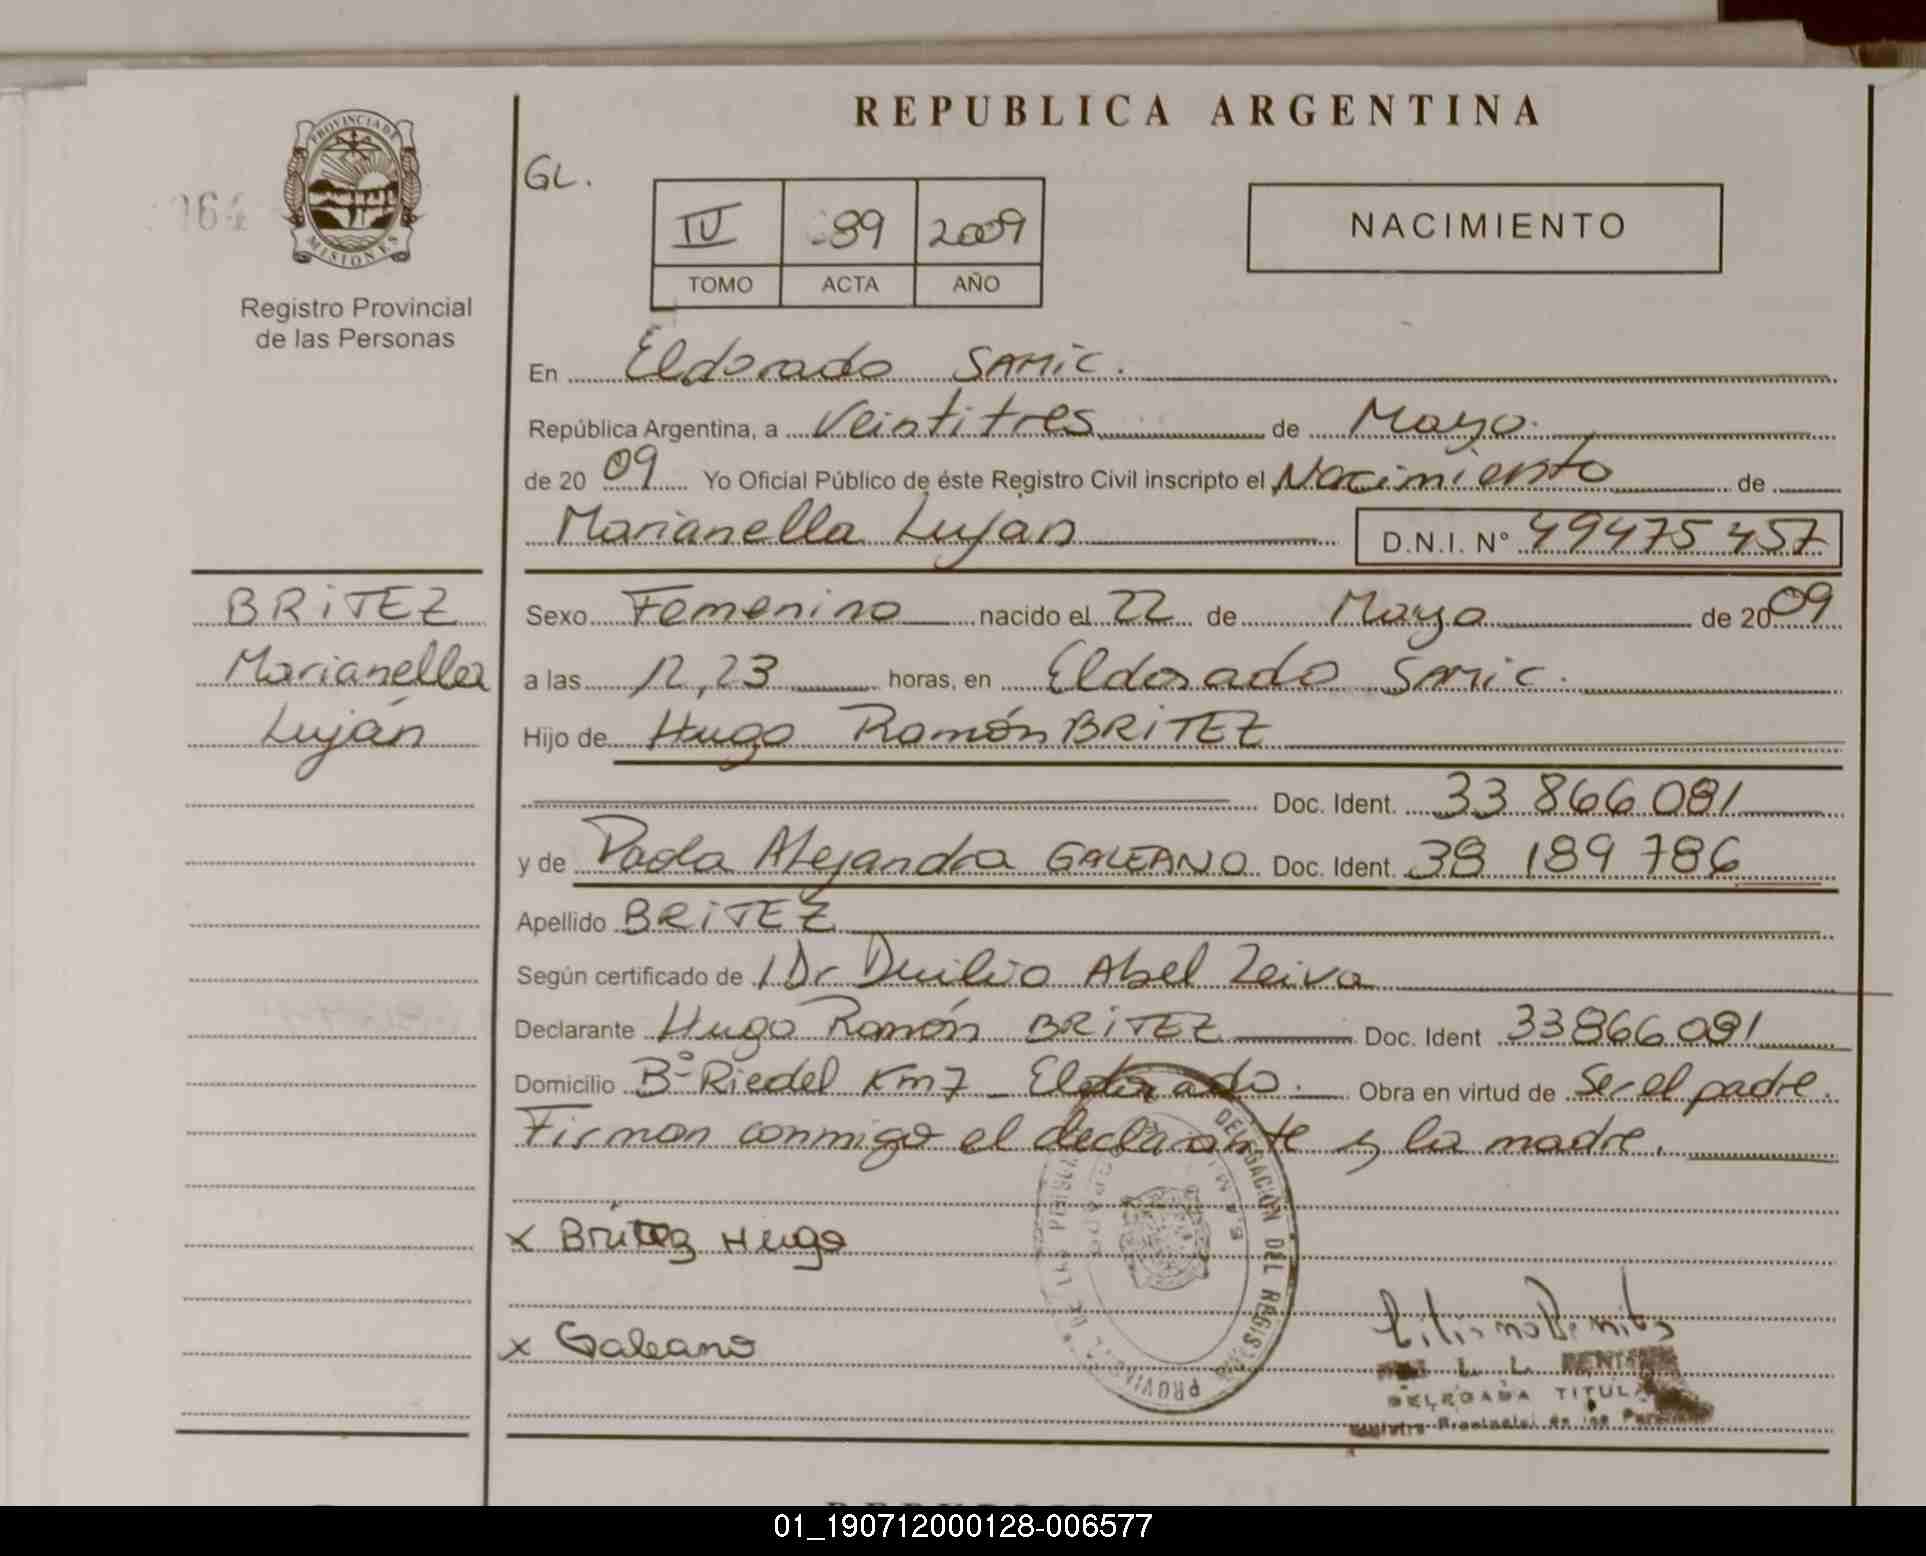 REPUBLICA ARGENTINA
PROVINCIA DE
MISIONES
Registro Provincial
de las Personas
GL.
IV 89 2009
TOMO ACTA AÑO
NACIMIENTO
En Eldorado SAMIC.
República Argentina, a Veintitres de Mayo.
de 2009 Yo Oficial Público de éste Registro Civil inscripto el Nacimiento de
Marianella Lujan D.N.I. N° 49475457
BRITEZ
Marianella
Luján
Sexo Femenino nacido el 22 de Mayo de 2009
a las 12,23 horas, en Eldorado SAMIC.
Hijo de Hugo Ramón BRITEZ
Doc. Ident. 33 866 081
y de Paola Alejandra GALEANO Doc. Ident. 38 189 786
Apellido BRITEZ
Según certificado de l Dr Duilio Abel Leiva
Declarante Hugo Ramón BRITEZ Doc. Ident 33866081
Domicilio B° Riedel Km 7 Eldorado. Obra en virtud de Ser el padre.
Firman conmigo el declarante y la madre.
DELEGACION DEL REGISTRO PROVINCIAL DE LAS PERSONAS
x Britez Hugo
x Galeano
DELEGADA TITULAR
01_190712000128-006577